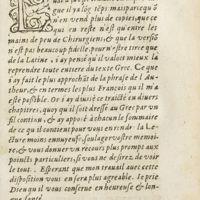 que il y a lõg tẽps mais parce qu'õ
n'en vend plus de copies, que ce
qui en reste n'est qu'entre les
mains de peu de Chirurgiens, & que la versiõ
n'est pas beaucoup fidelle, pour n'estre tiree que
de la Latine, i'ay pensé qu'il valoit mieux la
reprendre toute entiere du texte Grec. Ce que
i'ay fait le plus approchãt de la phrase de l'Au-
theur, & en termes les plus François qu'il m'a
esté possible. Or i'ay diuisé ce traicté en diuers
chapitres, quoy qu'il soit dressé au Grec par vn
fil continu, & ay apposé à chacun le sommaire
de ce qui il contient pour vous rendre la Le-
cture moins ennuyeuse, soulager vostre memoi-
re, & vous donner vn recours plus prompt aux
points particuliers, si vous ne desirez de voir
le tout. Esperant que mon trauail auec cette
disposition vous en sera plus agreable. Ie prie
Dieu qu'il vous conserue en heureuse & lon-
gue santé.